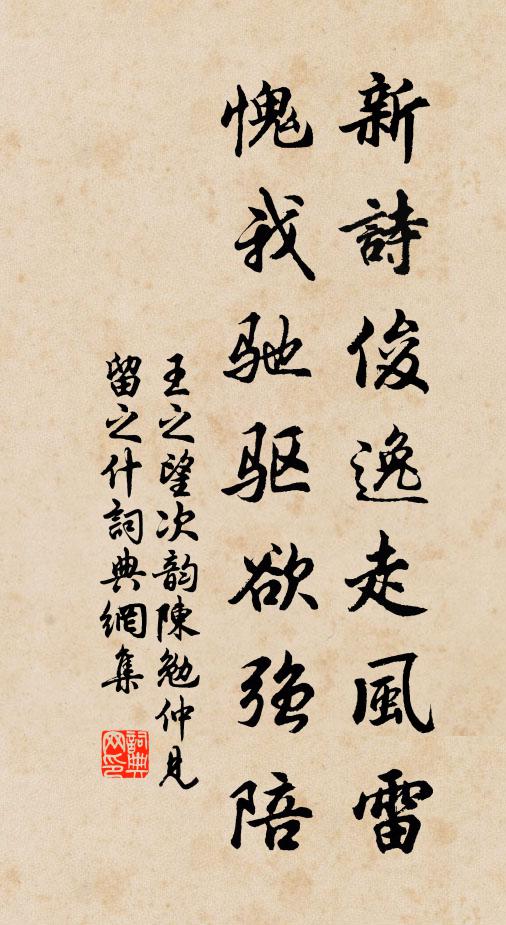 新詩俊逸走風雷
愧我驰驱欲強陪
王之望次韵陳勉仲見
留之什詞典網集
詞典网印